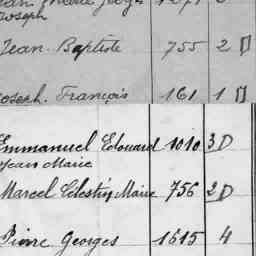 Joseph
Jean-Baptiste 755 2 D
Joseph. François 161 1 D
Emmanuel Edouard 1010 3 D
Jean Marie
Marcel Célestin Marie 756 2 D
Pierre Georges 1615 4